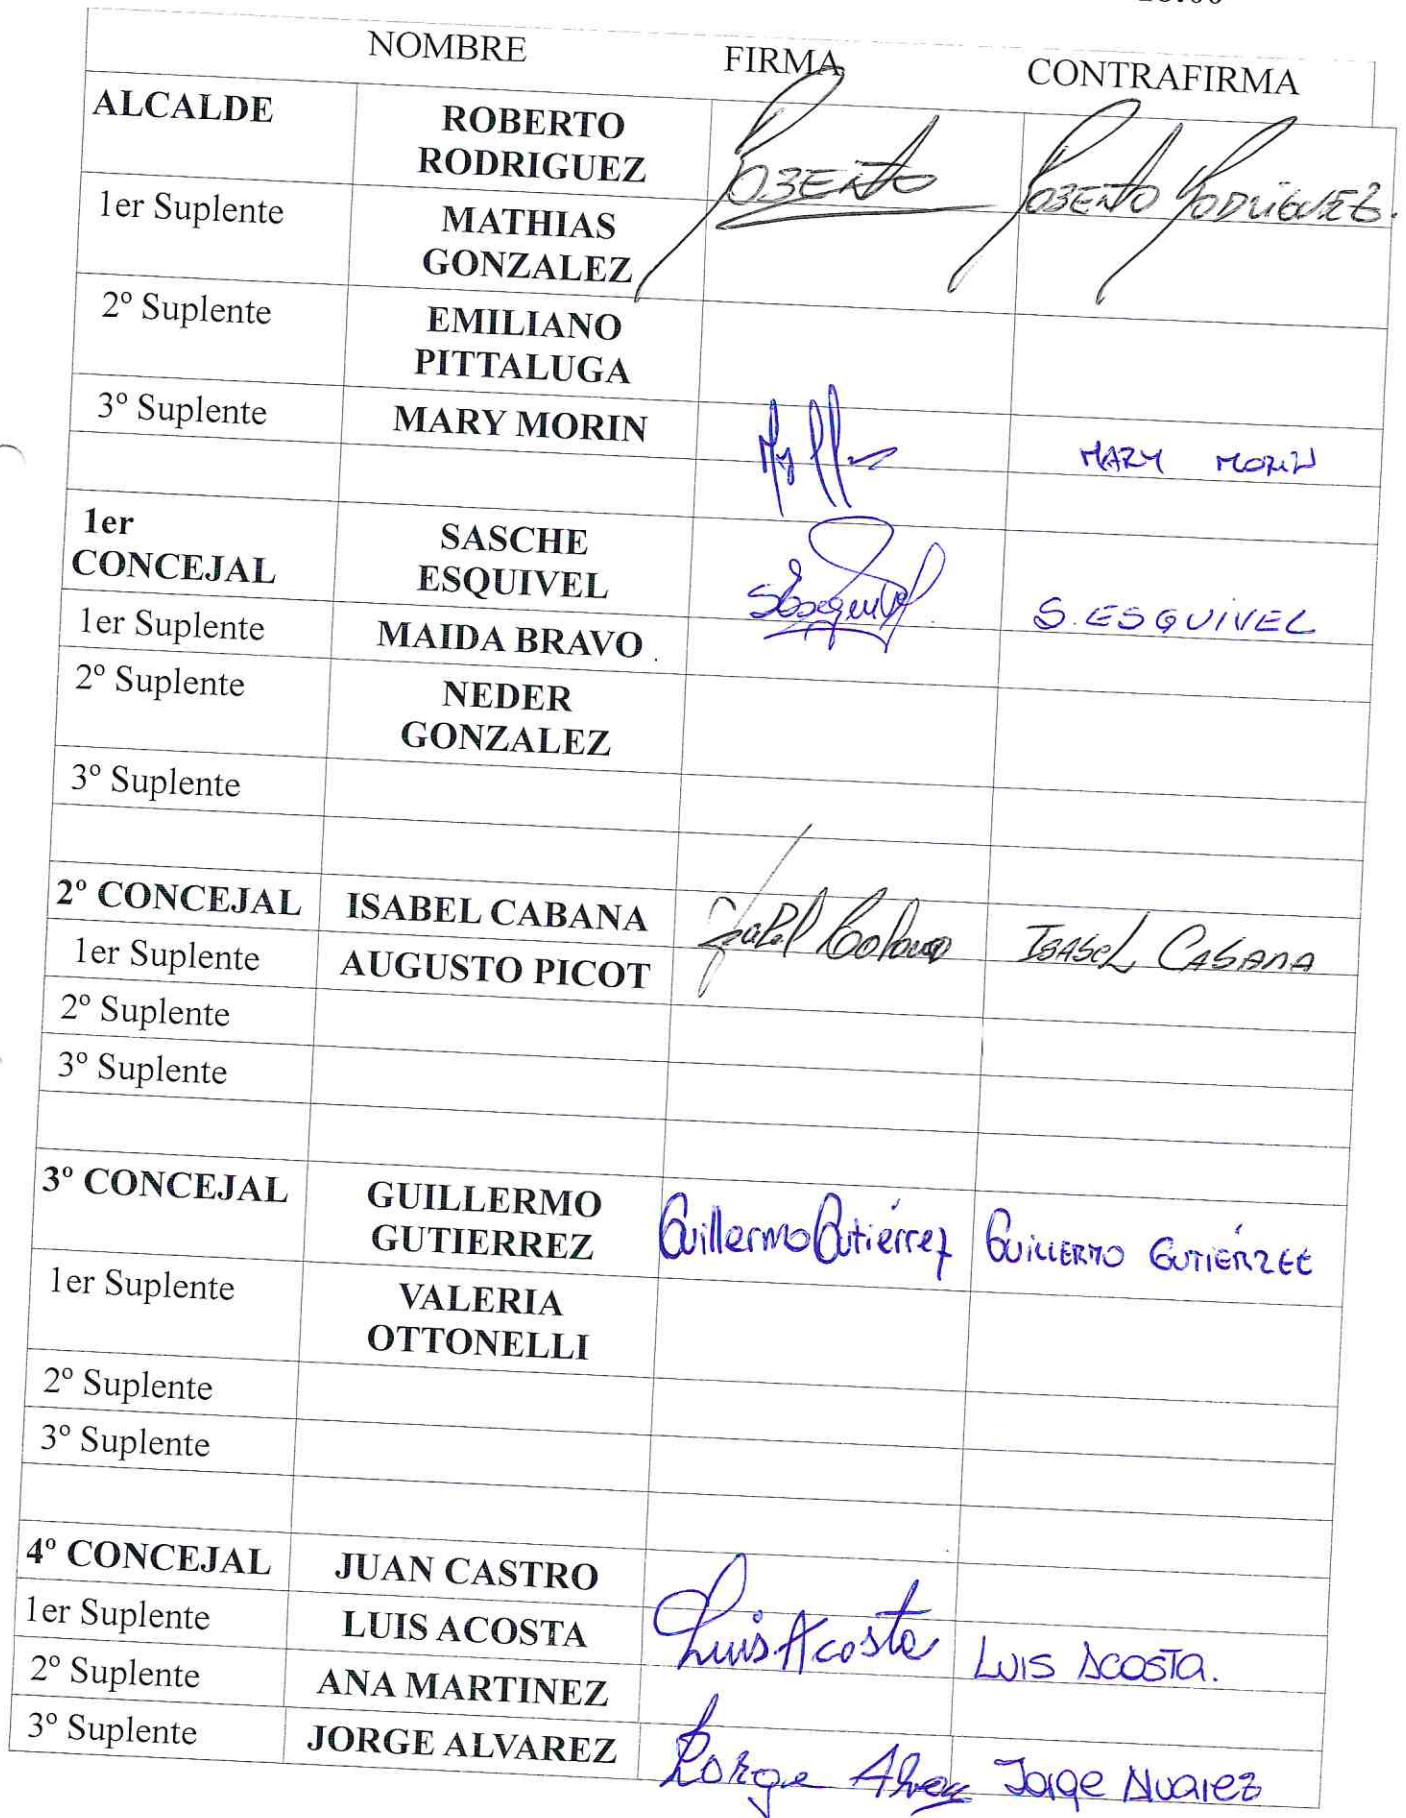 NOMBRE FIRMA CONTRAFIRMA
ALCALDE ROBERTO RODRIGUEZ ROBERTO ROBERTO RODRIGUEZ.
1er Suplente MATHIAS GONZALEZ
2º Suplente EMILIANO PITTALUGA
3º Suplente MARY MORIN MARY MORIN
1er CONCEJAL SASCHE ESQUIVEL SEsquivel S. ESQUIVEL
1er Suplente MAIDA BRAVO
2º Suplente NEDER GONZALEZ
3º Suplente
2º CONCEJAL ISABEL CABANA Isabel Cabana ISABEL CABANA
1er Suplente AUGUSTO PICOT
2º Suplente
3º Suplente
3º CONCEJAL GUILLERMO GUTIERREZ Guillermo Gutiérrez GUILLERMO GUTIÉRREZ
1er Suplente VALERIA OTTONELLI
2º Suplente
3º Suplente
4º CONCEJAL JUAN CASTRO
1er Suplente LUIS ACOSTA Luis Acosta LUIS ACOSTA.
2º Suplente ANA MARTINEZ
3º Suplente JORGE ALVAREZ Jorge Jorge Alvarez